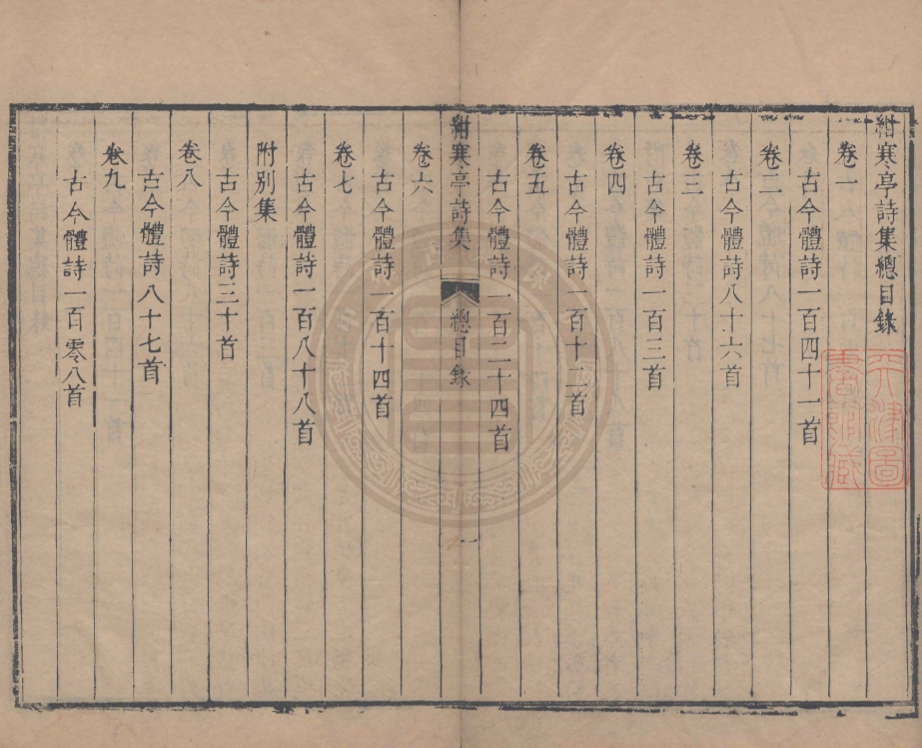 紺寒亭詩集總目錄
卷一
古今體詩一百四十一首
卷二
古今體詩八十六首
卷三
古今體詩一百三首
卷四
古今體詩一百十二首
卷五
古今體詩一百二十四首
紺寒亭詩集
總目錄
一
卷六
古今體詩一百十四首
卷七
古今體詩一百八十八首
附別集
古今體詩三十首
卷八
古今體詩八十七首
卷九
古今體詩一百零八首
天津圖
書館藏